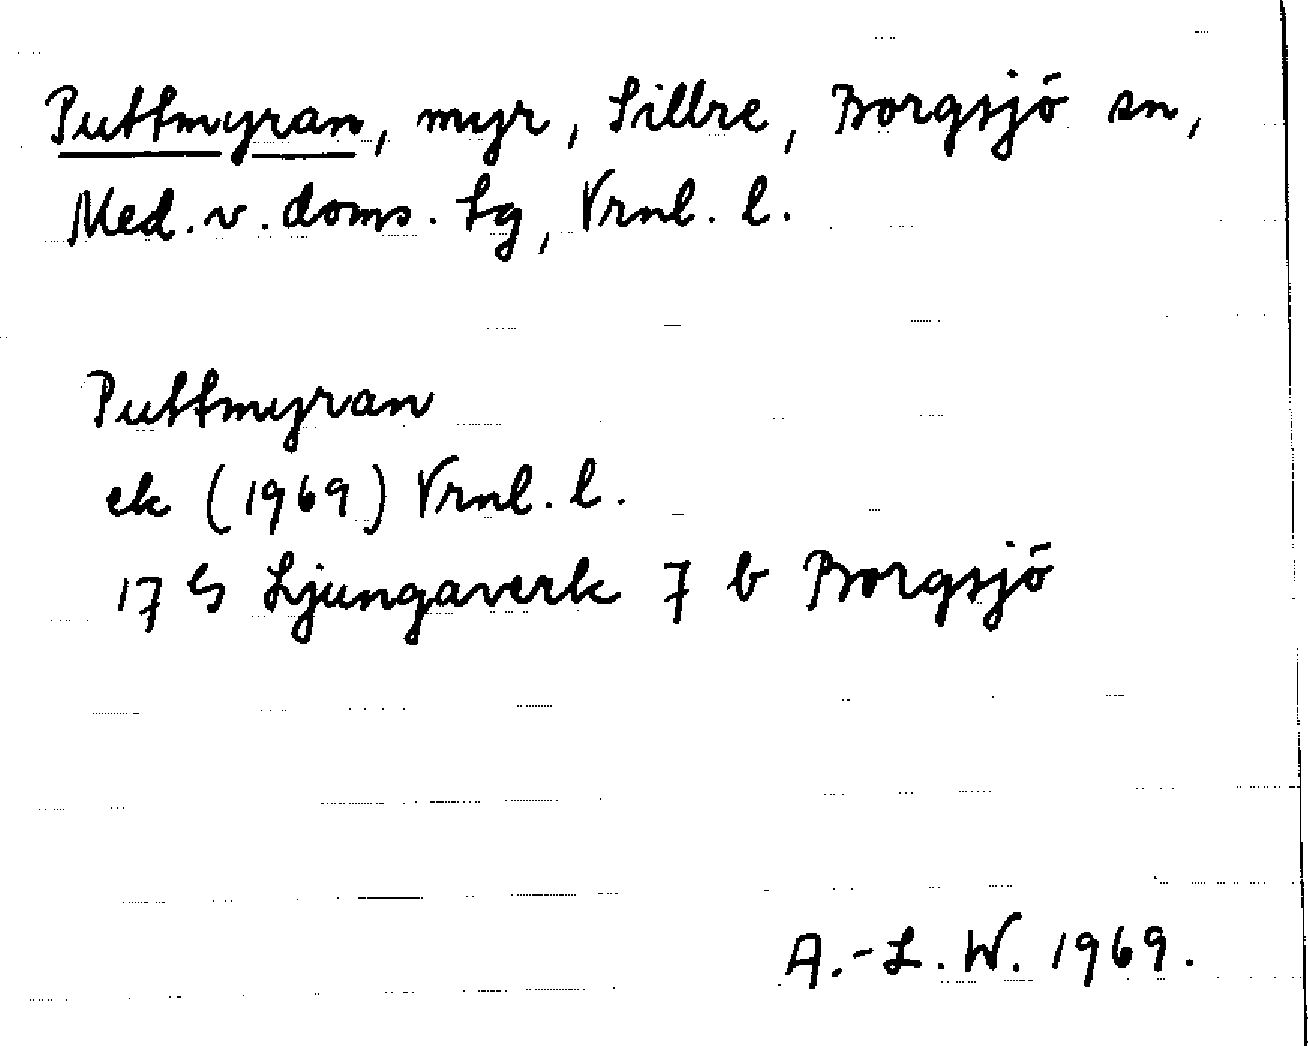 Puttmyran, myr, Sillre, Borgsjö sn,
Med. v. doms. Lg, Vrnl. l.
Puttmyran
ek (1969) Vrnl. l.
17 G Ljungaverk 7 b Borgsjö
A.-L. W. 1969.